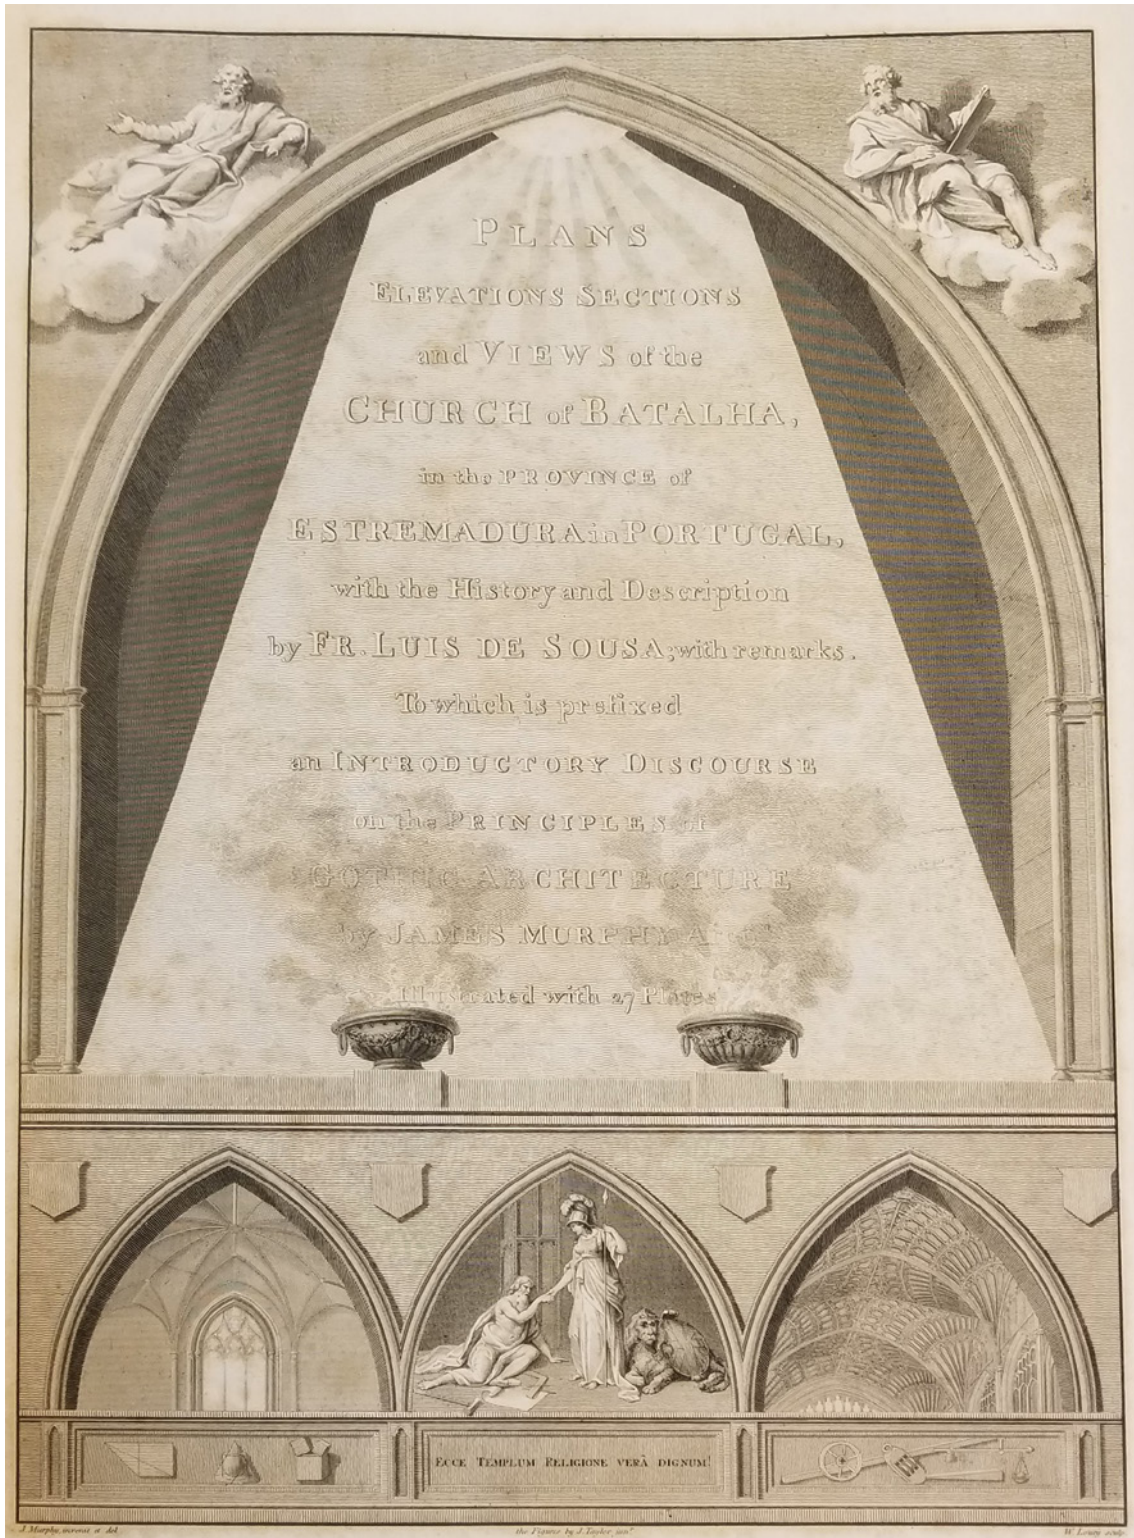 PLANS
ELEVATIONS SECTIONS
and VIEWS of the
CHURCH of BATALHA,
in the PROVINCE of
ESTREMADURA in PORTUGAL,
with the History and Description
by FR. LUIS DE SOUSA; with remarks.
To which is prefixed
an INTRODUCTORY DISCOURSE
on the PRINCIPLES of
GOTHIC ARCHITECTURE
by JAMES MURPHY
Illustrated with 27 Plates
ECCE TEMPLUM RELIGIONE VERÂ DIGNUM!
J. Murphy, invenit et del.
the Figures by J. Taylor, junr.
W. Lowry sculp